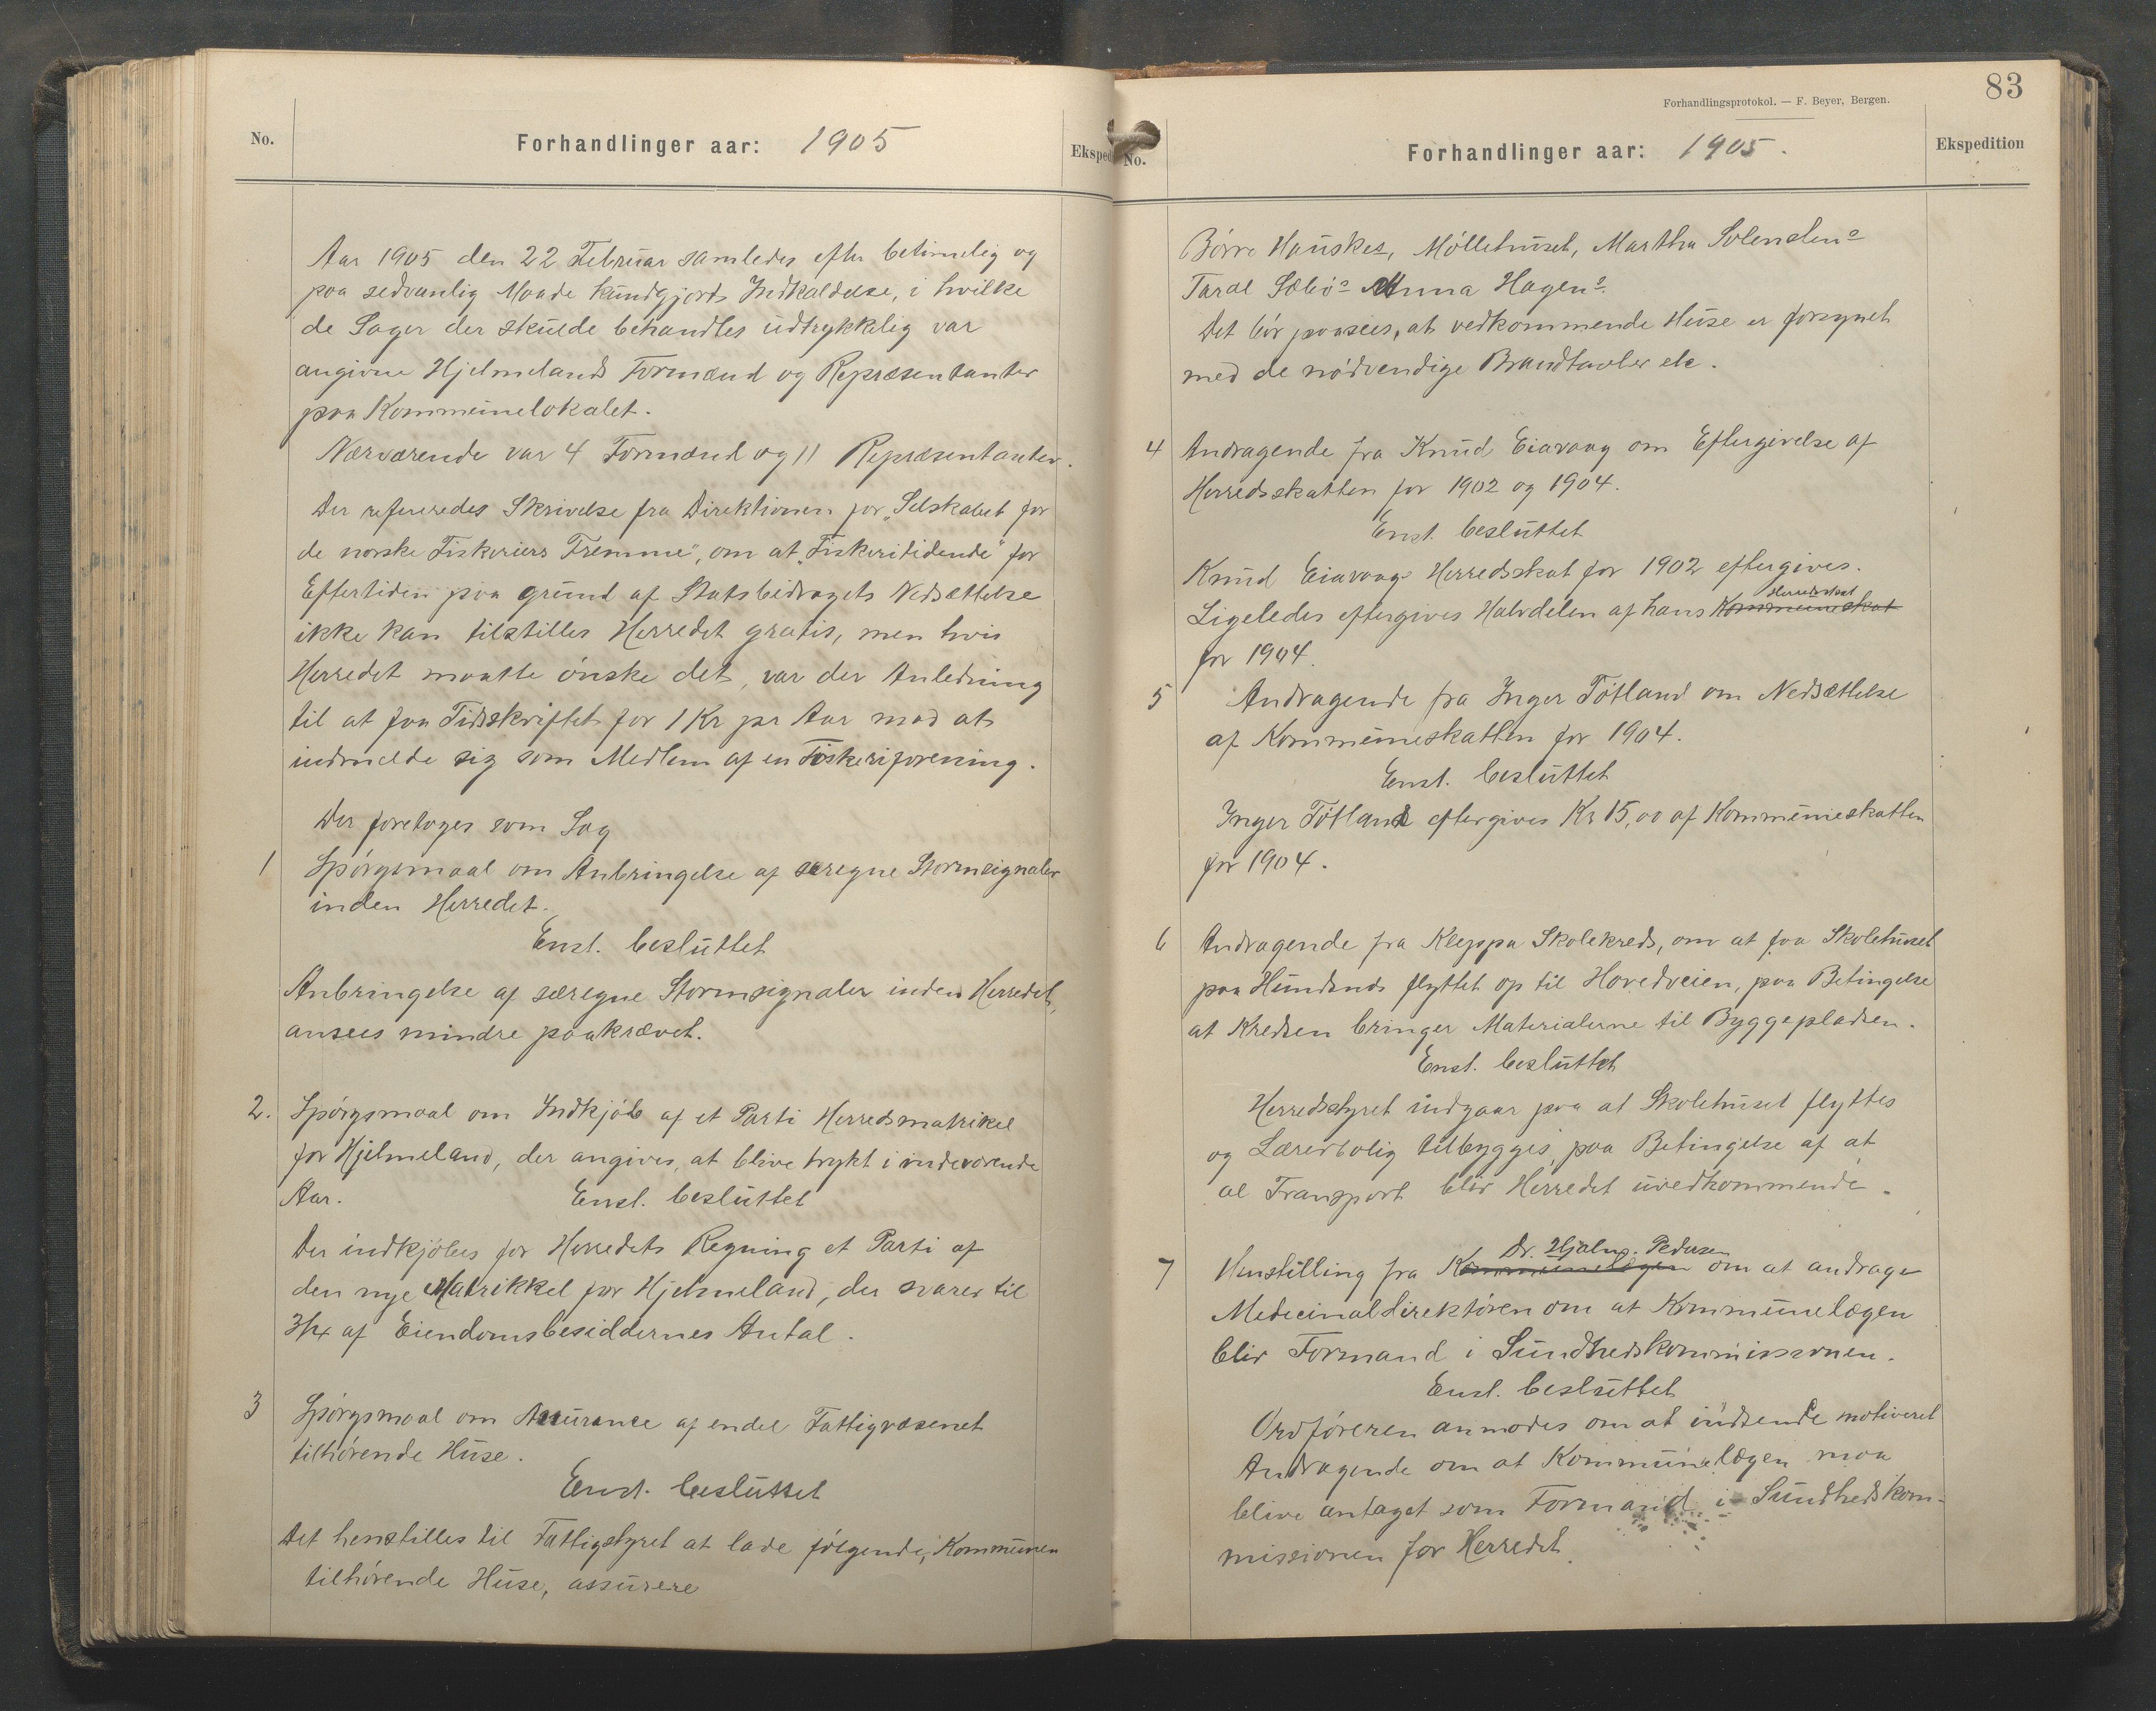 No.
Forhandlinger aar: 1905
Ekspe
Aar 1905 den 22 Februar samledes efter betimelig og
paa sedvanlig Maade kundgjords Indkaldelse, i hvilke
de Sager der skulde behandles udtrykkelig var
angivne Hjelmelands Formænd og Repræsentanter
paa Kommunelokalet.
Nærværende var 4 Formænd og 11 Repræsentanter.
Der refereredes Skrivelse fra Direktionen for „Selskabet for
de norske Fiskeriers Fremme", om at „Fiskeritidende" for
Eftertiden paa grund af Statsbidragets Nedsættelse
ikke kan tilstilles Herredet gratis, men hvis
Herredet maatte ønske det, var der Anledning
til at faa Tidsskriftet for 1 Kr pr Aar mod at
indmelde sig som Medlem af en Fiskeriforening.
Der foretoges som Sag
1 Spørgsmaal om Anbringelse af særegne Stormsignaler
inden Herredet.
Enst. besluttet
Anbringelse af særegne Stormsignaler inden Herredet,
ansees mindre paakrævet.
2. Spørgsmaal om Indkjøb af et Parti Herredsmatrikel
for Hjelmeland, der angives, at blive trykt i indeværende
Aar. Enst. besluttet
Der indkjøbes for Herredets Regning et Parti af
den nye Matrikkel for Hjelmeland, der svarer til
3/4 af Eiendomsbesiddernes Antal.
3 Spørgsmaal om Assurance af endel Fattigvæsenet
tilhørende Huse.
Enst. besluttet
Det henstilles til Fattigstyret at lade følgende, Kommunen
tilhørende Huse, assurere
83
Forhandlingsprotokol. — F. Beyer, Bergen.
No.
Forhandlinger aar: 1905.
Ekspedition
Børre Hauskes, Møllehuset, Martha Solendens
Taral Sæbøs Anna Hagens.
Det bør paasees, at vedkommende Huse er forsynet
med de nødvendige Brandtavler etc.
4 Andragende fra Knud Eiavaag om Eftergivelse af
Herredsskatten for 1902 og 1904.
Enst. besluttet
Knud Eiavaags Herredsskat for 1902 eftergives.
Herredsskat
Ligeledes eftergives Halvdelen af hans Kommuneskat
for 1904.
5 Andragende fra Inger Tøtland om Nedsættelse
af Kommuneskatten for 1904.
Enst. besluttet
Inger Tøtland eftergives Kr 15,00 af Kommuneskatten
for 1904.
6 Andragende fra Kleppa Skolekreds, om at faa Skolehuset
paa Hundsnes flyttet op til Hovedveien, paa Betingelse
at Kredsen bringer Materialerne til Byggepladsen.
Enst. besluttet
Herredsstyret indgaar paa at Skolehuset flyttes
og Lærerbolig tilbygges, paa Betingelse af at
al Transport blir Herredet uvedkommende.
Dr. Hjalm. Pedersen
7 Henstilling fra Kommunelægen om at andrage
Medicinaldirektøren om at Kommunelægen
blir Formand i Sundhedskommissionen.
Enst. besluttet
Ordføreren anmodes om at indsende motiveret
Andragende om at Kommunelægen maa
blive antaget som Formand i Sundhedskom-
missionen for Herredet.